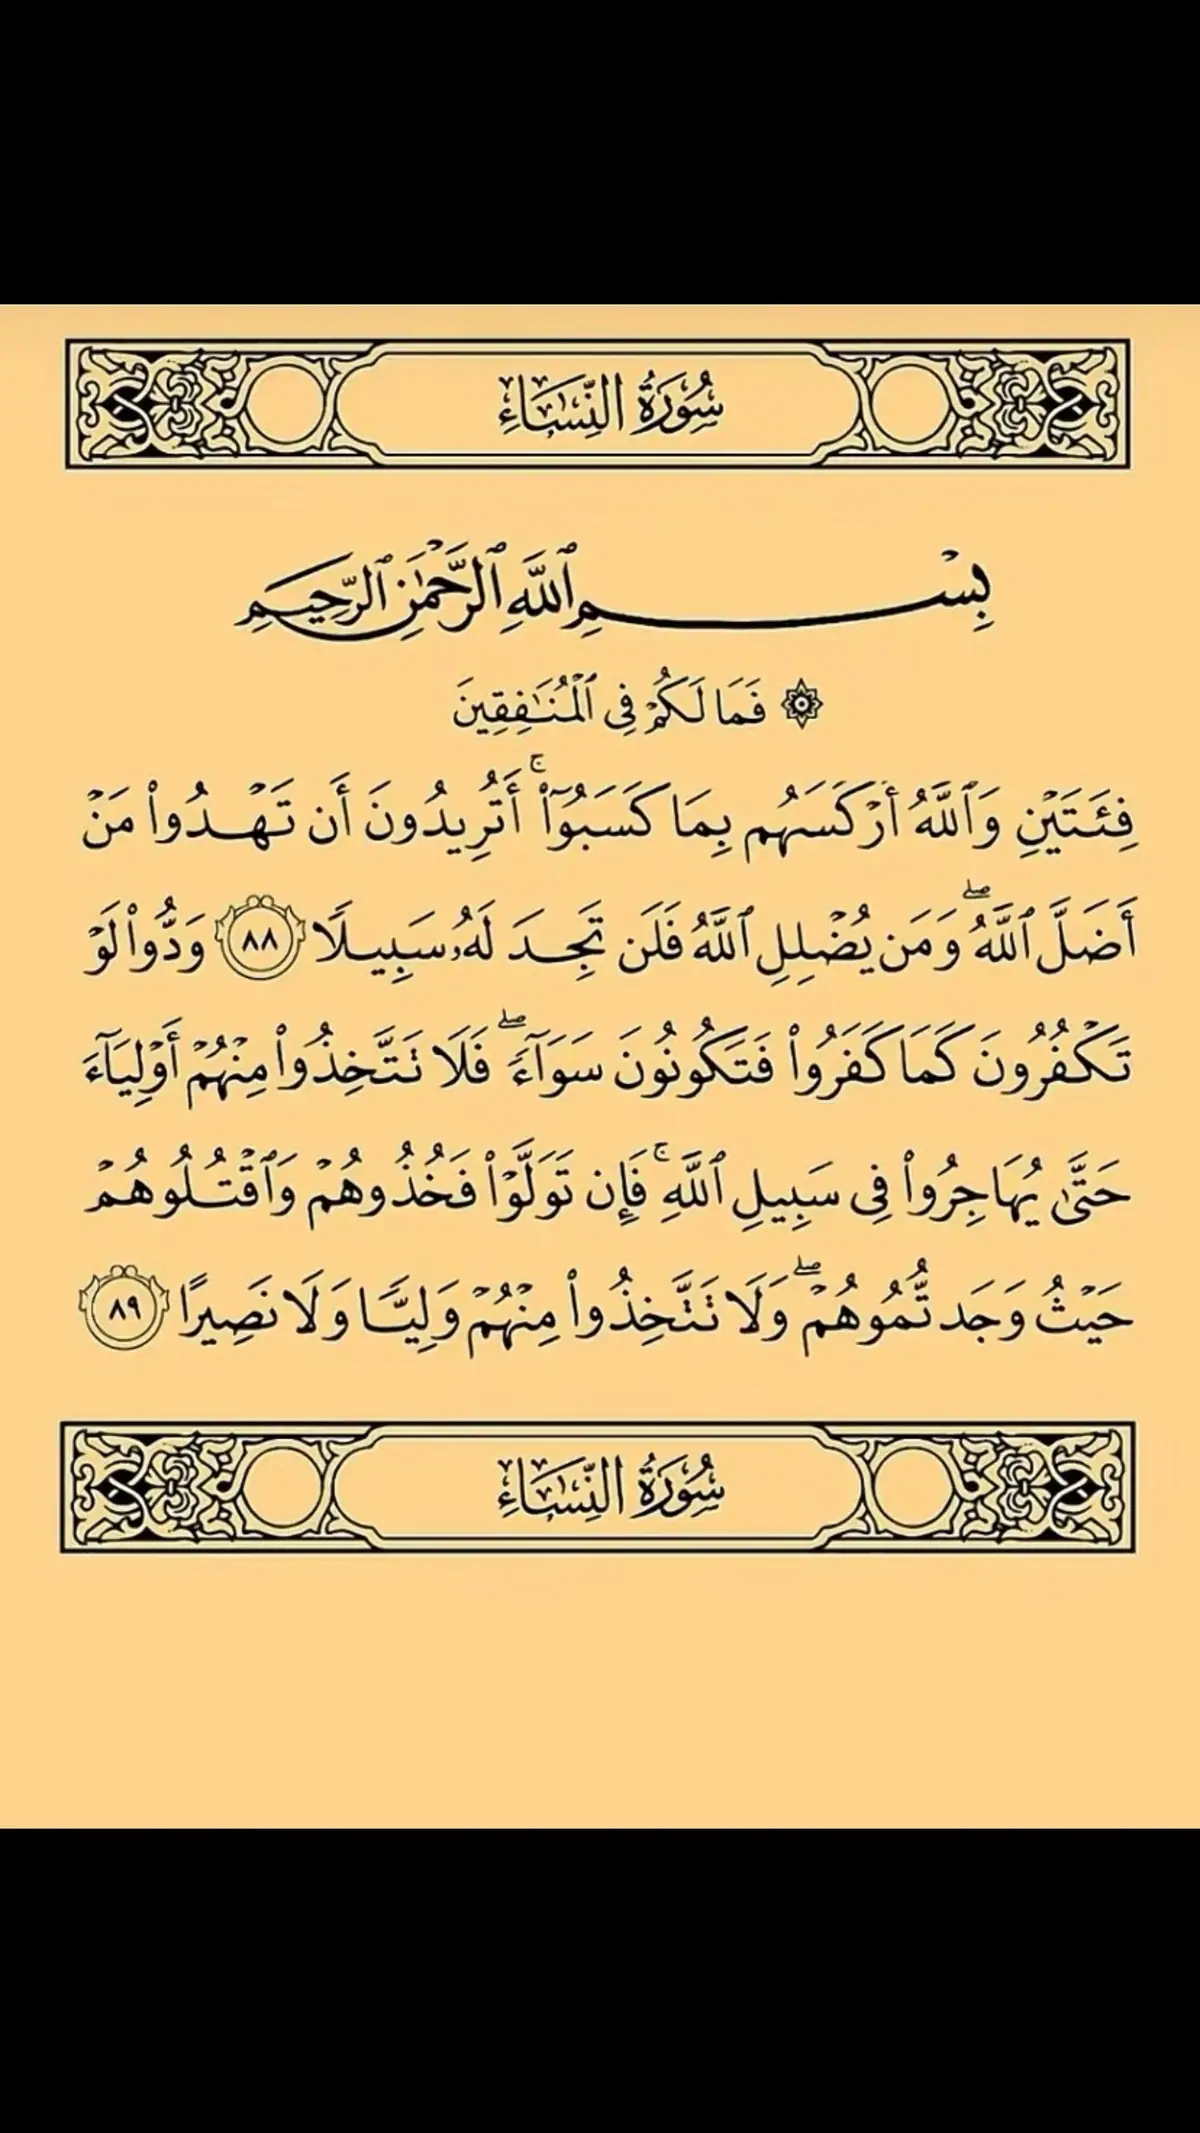 سُورَةُ النِّسَاءِ
بِسْمِ ٱللَّهِ ٱلرَّحْمَٰنِ ٱلرَّحِيمِ
۞ فَمَا لَكُمْ فِى ٱلْمُنَٰفِقِينَ
فِئَتَيْنِ وَٱللَّهُ أَرْكَسَهُم بِمَا كَسَبُوٓا۟ ۚ أَتُرِيدُونَ أَن تَهْدُوا۟ مَنْ
أَضَلَّ ٱللَّهُ ۖ وَمَن يُضْلِلِ ٱللَّهُ فَلَن تَجِدَ لَهُۥ سَبِيلًا ٨٨ وَدُّوا۟ لَوْ
تَكْفُرُونَ كَمَا كَفَرُوا۟ فَتَكُونُونَ سَوَآءً ۖ فَلَا تَتَّخِذُوا۟ مِنْهُمْ أَوْلِيَآءَ
حَتَّىٰ يُهَاجِرُوا۟ فِى سَبِيلِ ٱللَّهِ ۚ فَإِن تَوَلَّوْا۟ فَخُذُوهُمْ وَٱقْتُلُوهُمْ
حَيْثُ وَجَدتُّمُوهُمْ ۖ وَلَا تَتَّخِذُوا۟ مِنْهُمْ وَلِيًّا وَلَا نَصِيرًا ٨٩
سُورَةُ النِّسَاءِ